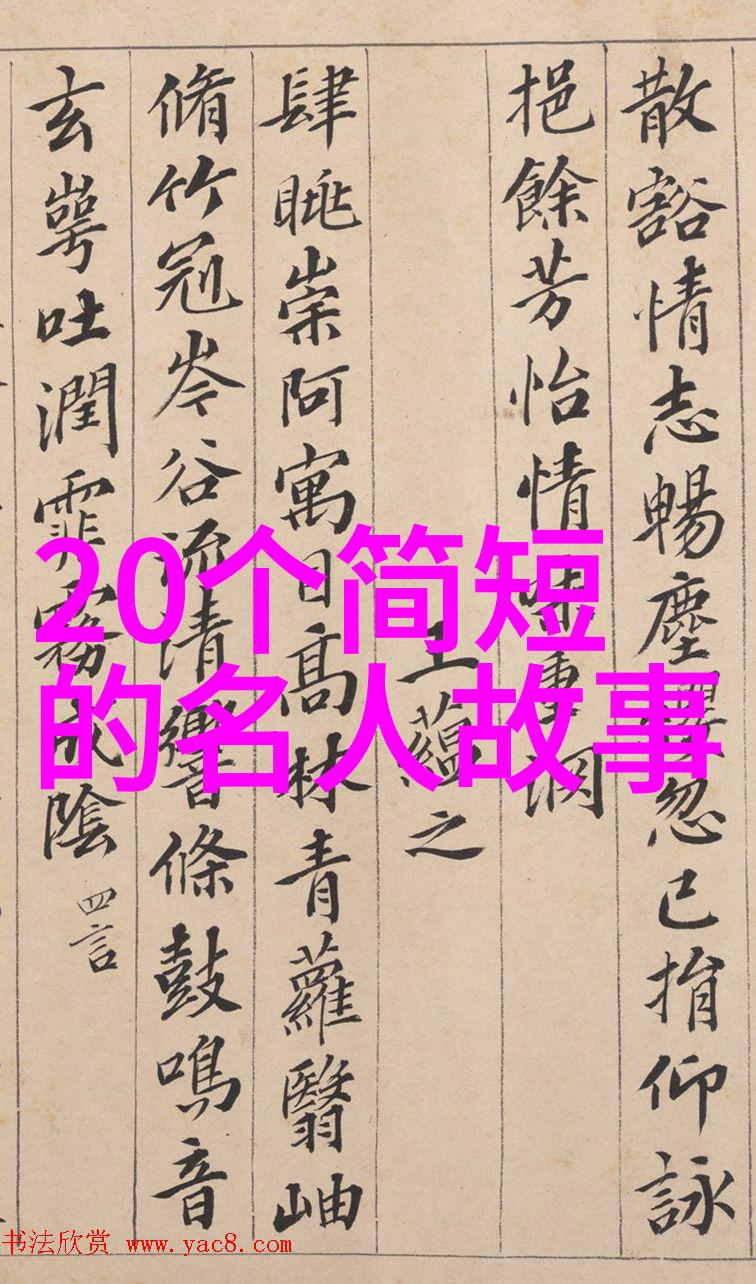 散豁情志暢塵忽已捐仰詠
挹餘芳怡情味重淵
王蘊之
肆眺崇阿寓目高林青蘿翳岫
脩竹冠岑谷流清響條鼓鳴音
玄崿吐潤霏霧成陰 四言
20个简短
的名人故事
书法欣赏 www.yac8.com